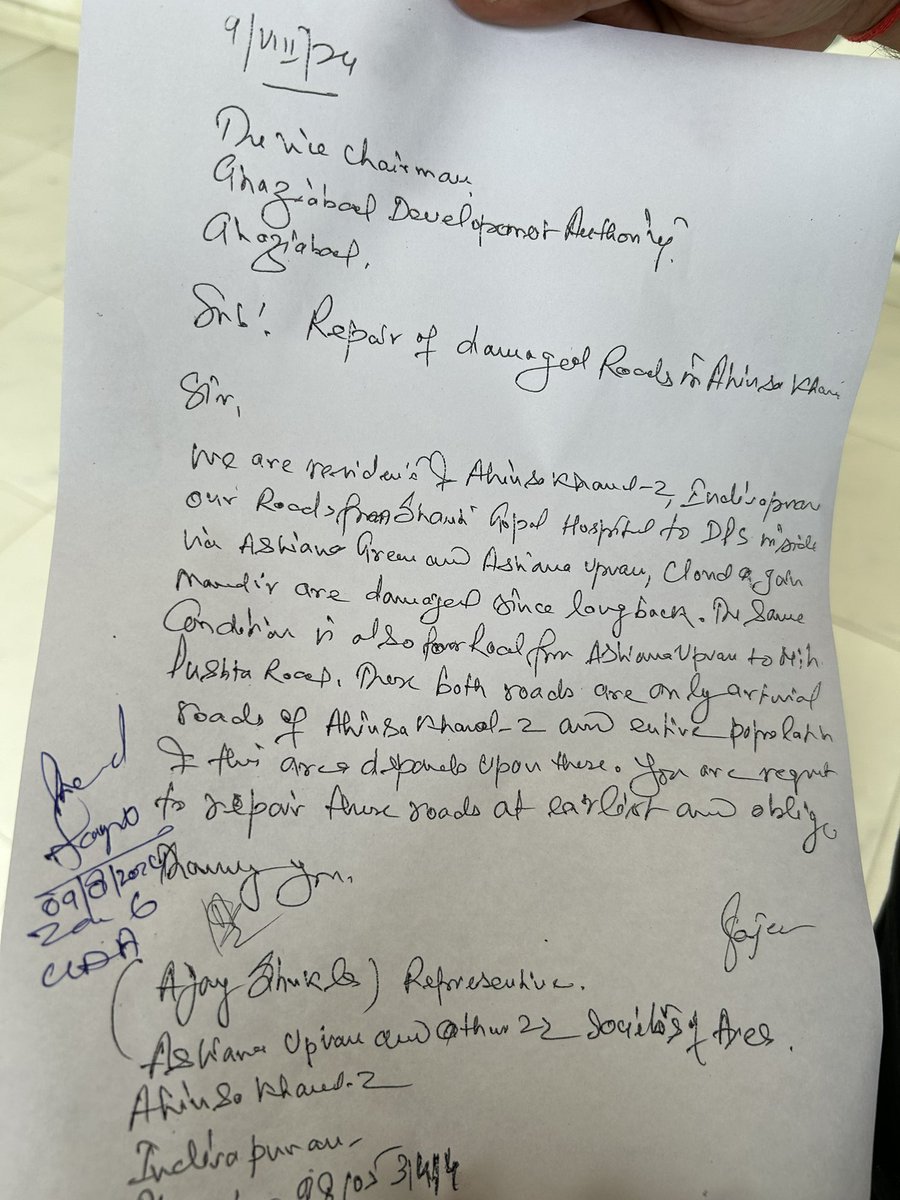 9/VIII/24
The Vice Chairman,
Ghaziabad Development Authority.
Ghaziabad.
Sub: Repair of damaged Roads in Ahinsa Khan
Sir,
We are residents of Ahinsa Khand-2, Indirapuram
our Roads from Shanti Gopal Hospital to DPS
via Ashiana Green and Ashiana Upvan, Cloud 9, Jain
Mandir are damaged since long back. The Same
Condition is also for Road from Ashiana Upvan to
Pushta Road. These both roads are only arterial
roads of Ahinsa Khand-2 and entire population
of this area depends upon these. You are request
to repair these roads at earliest and oblige
Thanking you.
09/8/2024
GDA
(Ajay Shukla) Representive.
Ashiana Upvan and other 22 Societies of Area.
Ahinsa Khand-2
Indirapuram-